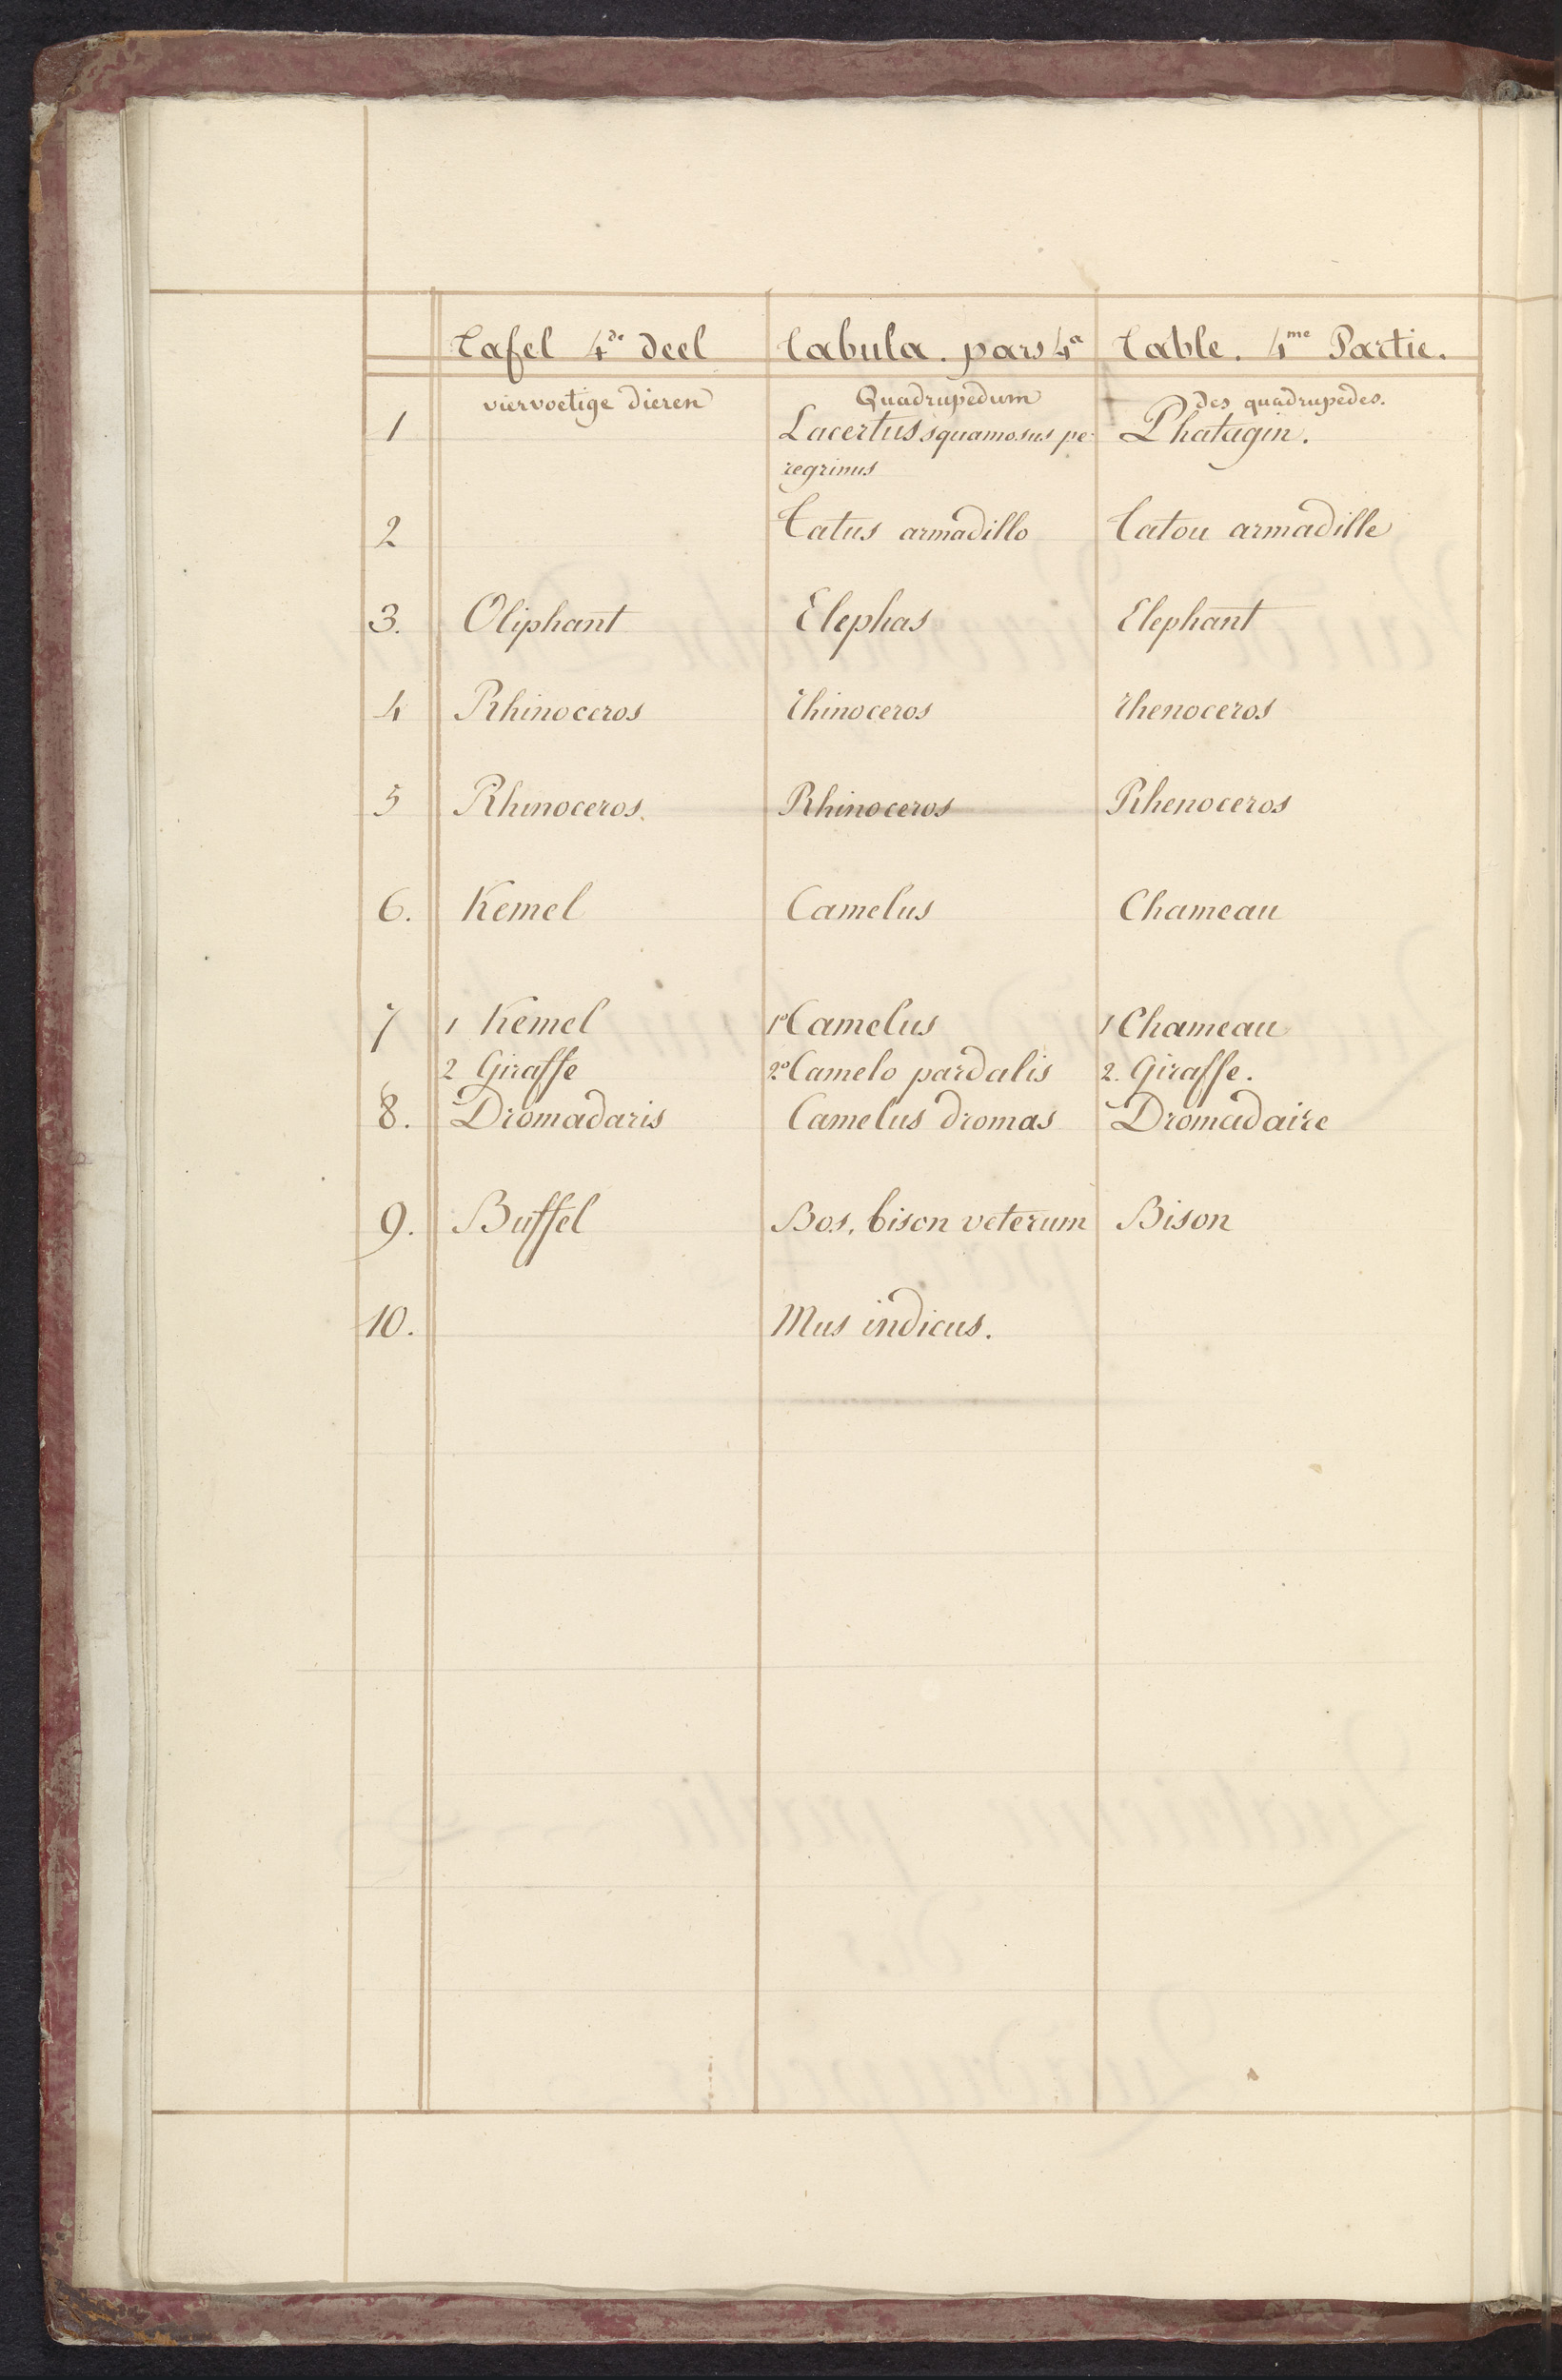 Tafel 4de deel Tabula. pars 4a Table. 4me Partie.
viervoetige dieren Quadrupedum des quadrupedes.
1 Lacertus squamosus pe- Phatagin.
regrinus
2 Tatus armadillo Tatou armadille
3. Oliphant Elephas Elephant
4 Rhinoceros rhinoceros rhenoceros
5 Rhinoceros. Rhinoceros Rhenoceros
6. Kemel Camelus Chameau
7 1 Kemel 1º Camelus 1 Chameau
2 Giraffe 2º Camelo pardalis 2. Giraffe.
8. Dromadaris Camelus dromas Dromadaire
9. Buffel Bos, bison veterum Bison
10. Mus indicus.